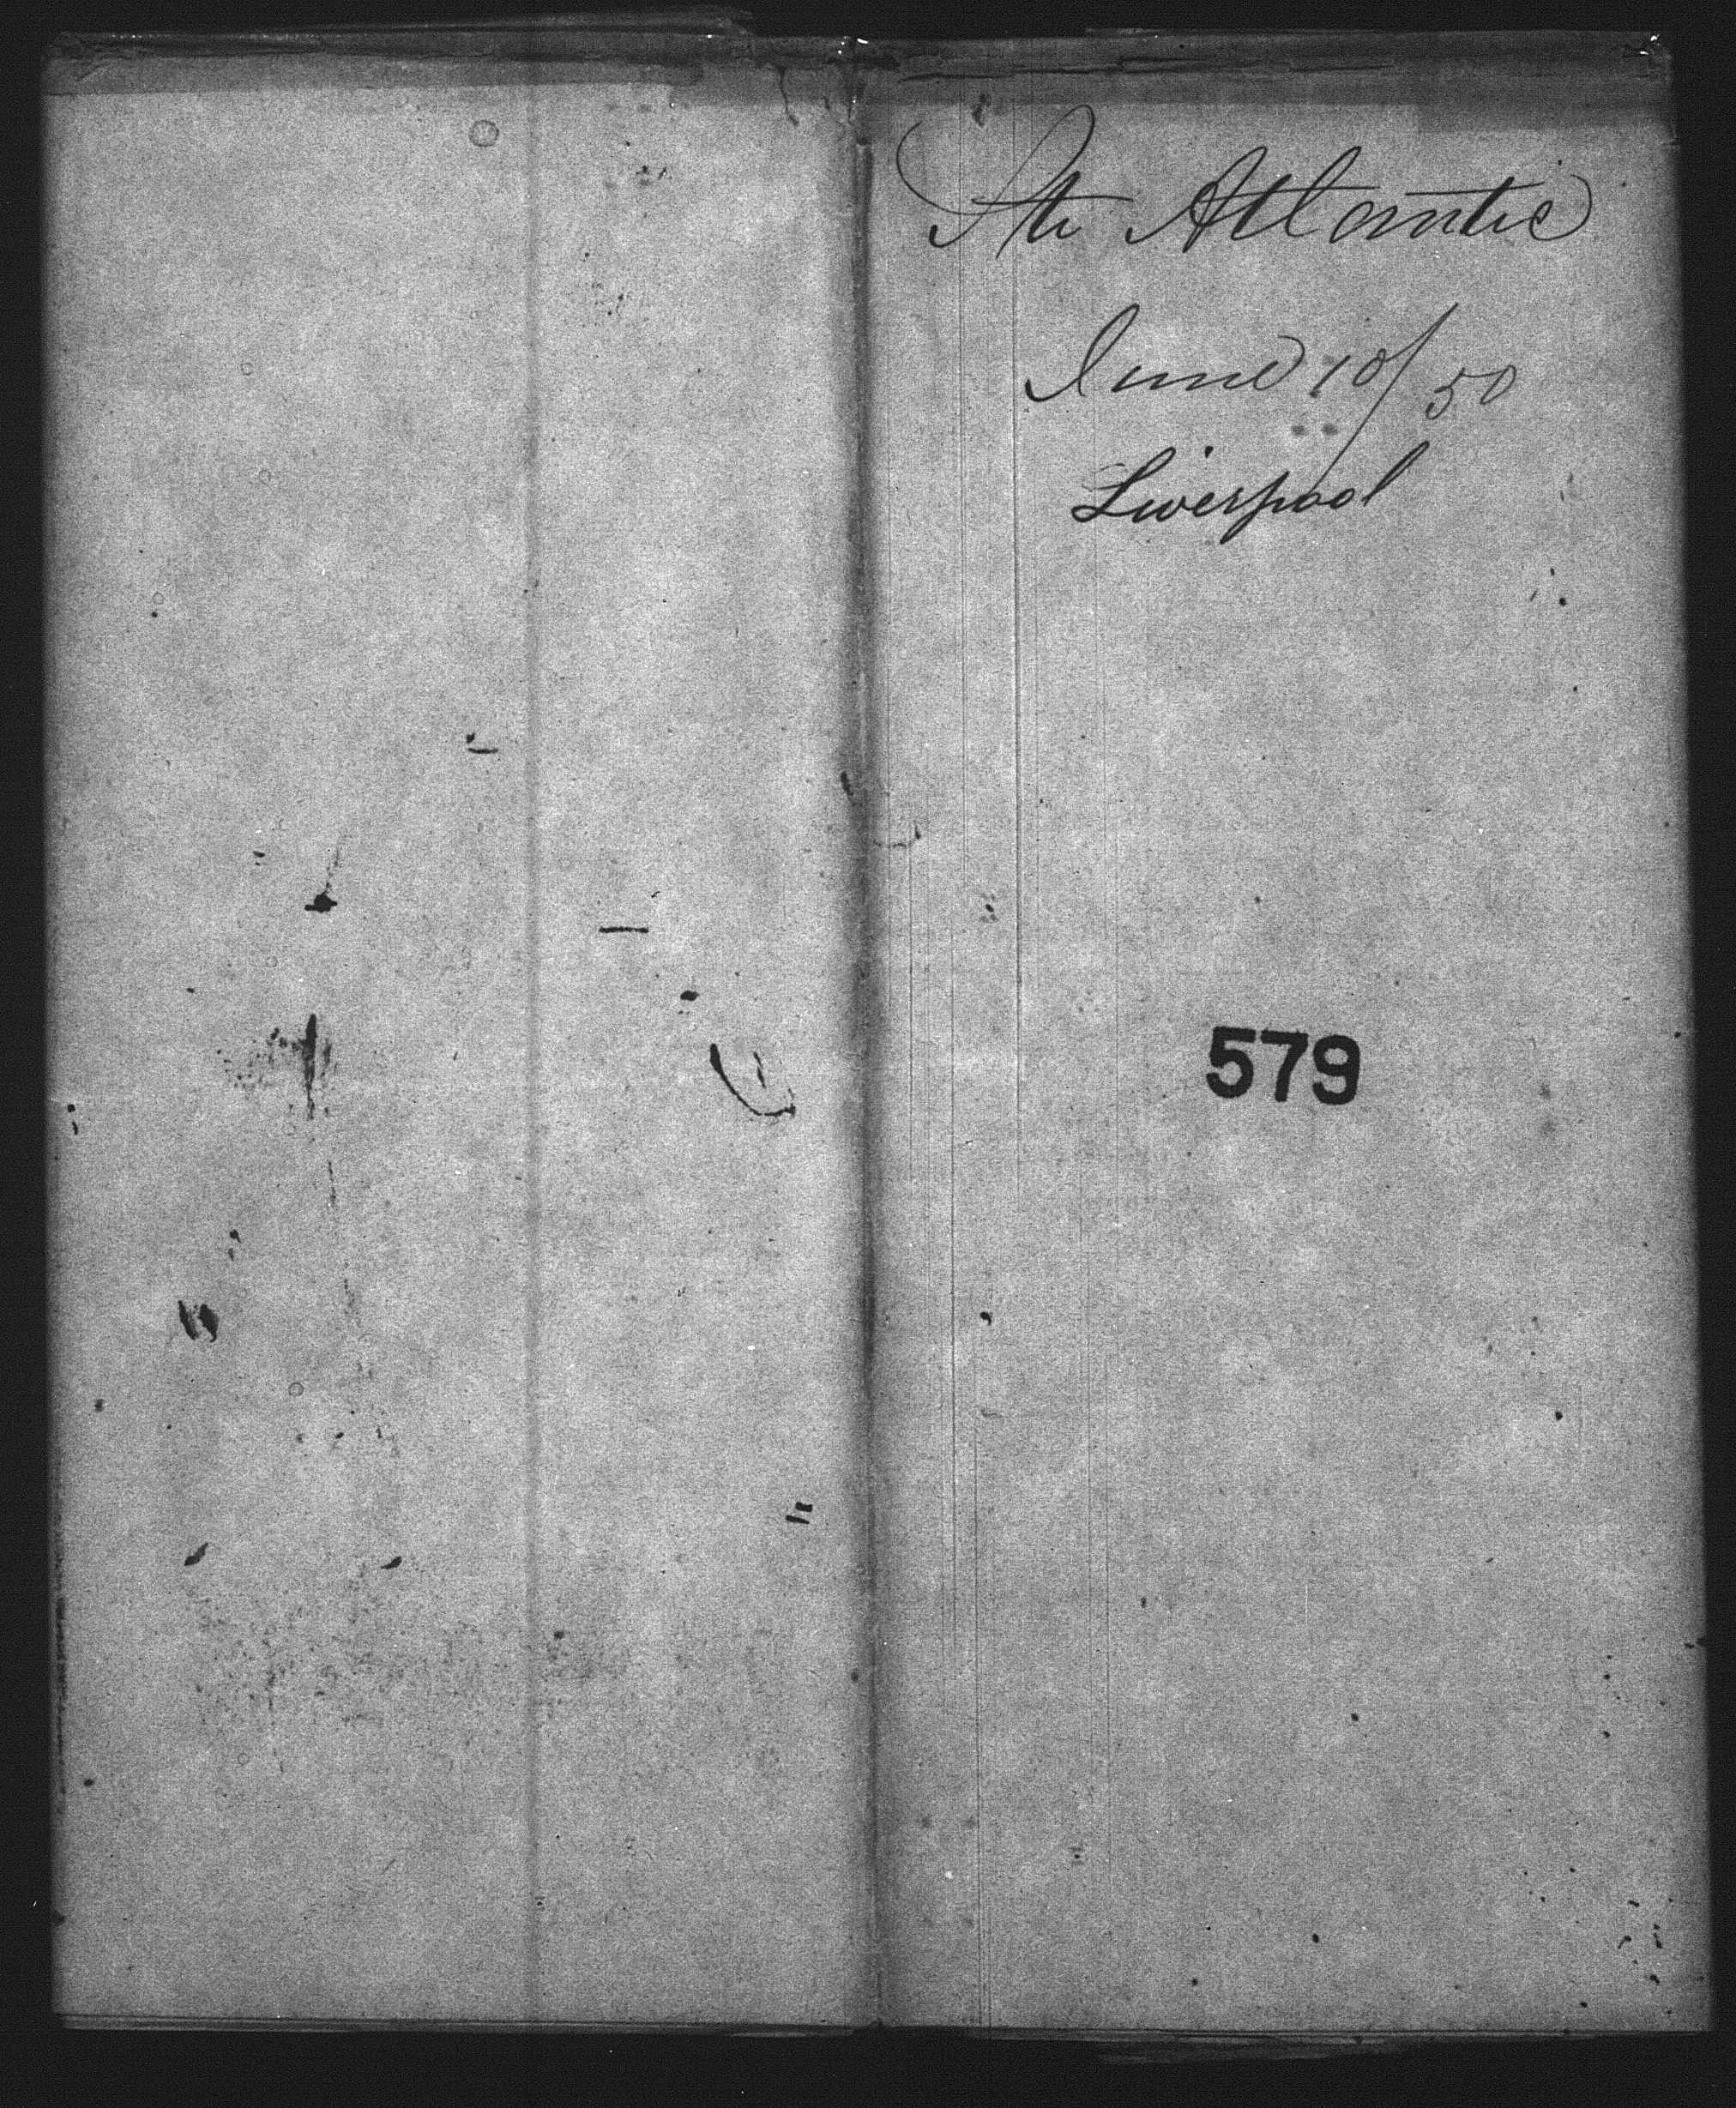 Str Atlantic
June 10/50
Liverpool
579